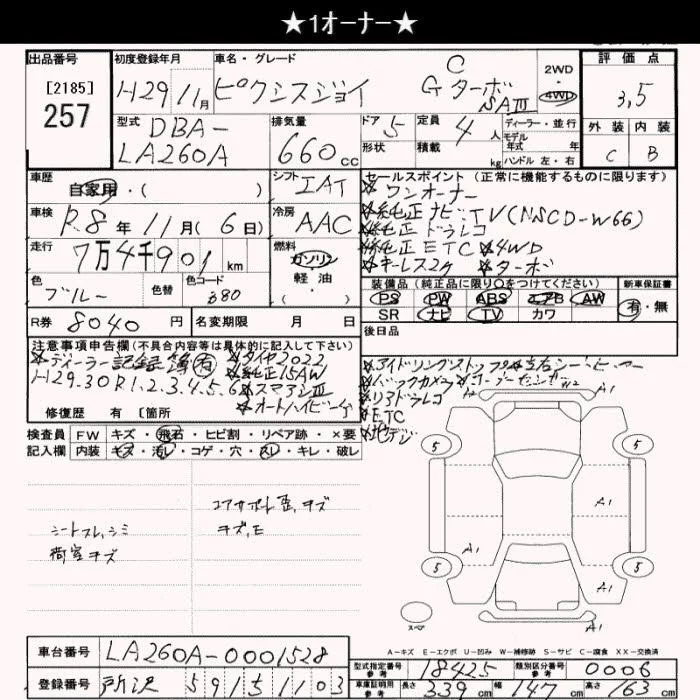 ★1ｵｰﾅｰ★
出品番号
[2185]
257
初度登録年月
H29年11月
車名・グレード
ピクシスジョイ
C
Gターボ
SAⅢ
2WD
4WD
評価点
3.5
外装 内装
C B
型式
DBA-
LA260A
排気量
660cc
ドア 5
定員 4人
形状
積載 kg
ディーラー・並行
モデル
年式 年
ハンドル 左・右
車歴
自家用・( )
シフト
IAT
車検
R.8年11月(6日)
冷房
AAC
走行
7万4千901km
燃料
ガソリン
軽油
( )
色
ブルー
色替
色コード
B80
R券 8040円
名変期限 月 日
セールスポイント(正常に機能するものに限ります)
☆ワンオーナー
☆純正ナビ・TV(NSCD-W66)
☆純正ドラレコ
☆純正ETC ☆4WD
☆キーレス2ケ ☆ターボ
装備品(純正品に限り○をつけてください)
新車保証書
PS PW ABS エアB AW
SR ナビ TV カワ
有・無
後日品
注意事項申告欄(不具合内容等は具体的に記入して下さい)
☆ディーラー記録簿(有) ☆タイヤ2022
H29.30 R1.2.3.4.5.6 ☆純正15AW
☆スマアシⅢ
☆オートハイビーム
修復歴 有 [箇所
☆アイドリングストップ ☆左右シートヒーター
☆バックカメラ ☆コーナーセンサー
☆リアドラレコ
☆ETC
☆地デジ
検査員
記入欄
FW キズ・飛石・ヒビ割・リペア跡・×要
内装 キズ・汚レ・コゲ・穴・スレ・キレ・破レ
シートスレ,シミ
荷室キズ
コアサポート歪,キズ
キズ,E
A2 W2 A1
5 5
A1
A1 A1
5 5
A1
スペア
A-キズ E-エクボ U-凹み W-補修跡 S-サビ C-腐食 XX-交換済
車台番号
LA260A-0001528
登録番号
所沢 591 5 1103
型式指定番号
参考
18425
類別区分番号
参考
0006
車庫証明用
参考
長さ 339cm 幅 147cm 高さ 163cm